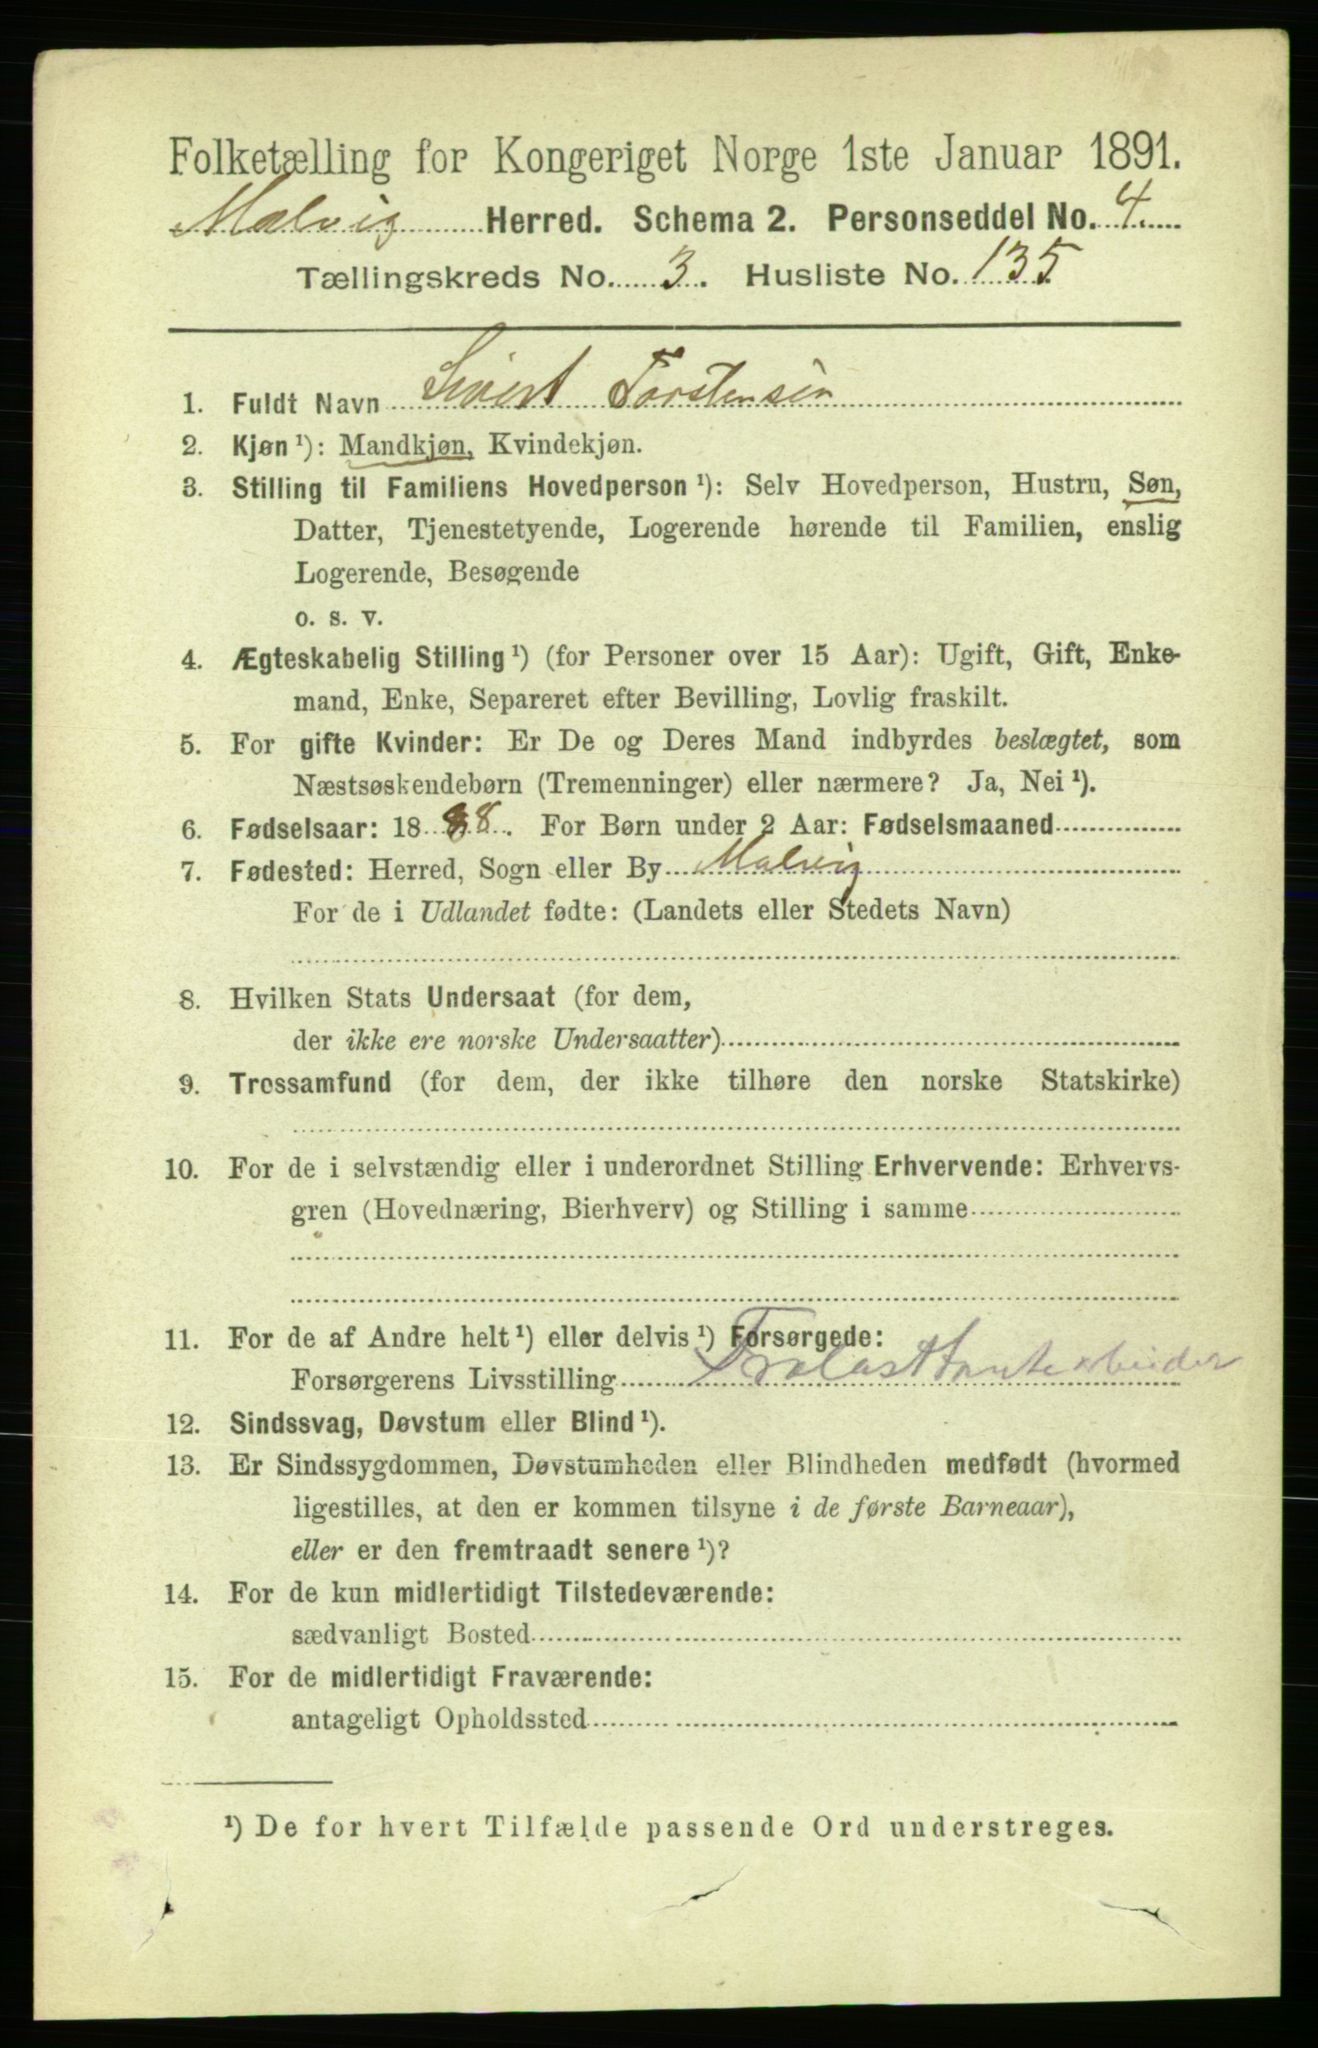 Folketælling for Kongeriget Norge 1ste Januar 1891.
Malvig Herred. Schema 2. Personseddel No. 4.
Tællingskreds No. 3. Husliste No. 135
1. Fuldt Navn Sivert Torstensen
2. Kjøn ¹): Mandkjøn, Kvindekjøn.
3. Stilling til Familiens Hovedperson ¹): Selv Hovedperson, Hustru, Søn,
Datter, Tjenestetyende, Logerende hørende til Familien, enslig
Logerende, Besøgende
o. s. v.
4. Ægteskabelig Stilling ¹) (for Personer over 15 Aar): Ugift, Gift, Enke-
mand, Enke, Separeret efter Bevilling, Lovlig fraskilt.
5. For gifte Kvinder: Er De og Deres Mand indbyrdes beslægtet, som
Næstsøskendebørn (Tremenninger) eller nærmere? Ja, Nei ¹).
6. Fødselsaar: 1888. For Børn under 2 Aar: Fødselsmaaned
7. Fødested: Herred, Sogn eller By Malvig
For de i Udlandet fødte: (Landets eller Stedets Navn)
8. Hvilken Stats Undersaat (for dem,
der ikke ere norske Undersaatter)
9. Trossamfund (for dem, der ikke tilhøre den norske Statskirke)
10. For de i selvstændig eller i underordnet Stilling Erhvervende: Erhvervs-
gren (Hovednæring, Bierhverv) og Stilling i samme
11. For de af Andre helt ¹) eller delvis ¹) Forsørgede:
Forsørgerens Livsstilling arbeider
12. Sindssvag, Døvstum eller Blind ¹).
13. Er Sindssygdommen, Døvstumheden eller Blindheden medfødt (hvormed
ligestilles, at den er kommen tilsyne i de første Barneaar),
eller er den fremtraadt senere ¹)?
14. For de kun midlertidigt Tilstedeværende:
sædvanligt Bosted
15. For de midlertidigt Fraværende:
antageligt Opholdssted
¹) De for hvert Tilfælde passende Ord understreges.